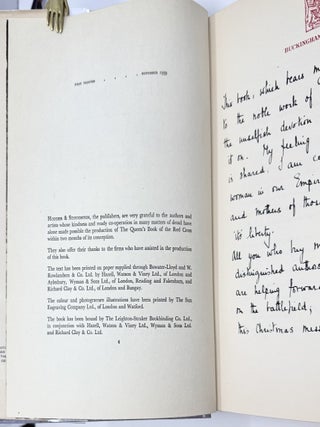 FIRST PRINTED . . . . NOVEMBER 1939
HODDER & STOUGHTON, the publishers, are very grateful to the authors and
artists whose kindness and ready co-operation in many matters of detail have
alone made possible the production of The Queen's Book of the Red Cross
within two months of its conception.
They also offer their thanks to the firms who have assisted in the production
of this book.
The text has been printed on paper supplied through Bowater-Lloyd and W.
Rowlandson & Co. Ltd. by Hazell, Watson & Viney Ltd., of London and
Aylesbury, Wyman & Sons Ltd., of London, Reading and Fakenham, and
Richard Clay & Co. Ltd., of London and Bungay.
The colour and photogravure illustrations have been printed by The Sun
Engraving Company Ltd., of London and Watford.
The book has been bound by The Leighton-Straker Bookbinding Co. Ltd.,
in conjunction with Hazell, Watson & Viney Ltd., Wyman & Sons Ltd. and
Richard Clay & Co. Ltd.
4
BUCKINGHAM
This book, which bears m
to the noble work of
the unselfish devotion
it on. My feeling
is shared, I am co
woman in our Empir
and mothers of those
its liberty.
All you who buy m
distinguished autho
are helping forwar
on the battlefield,
this Christmas mess